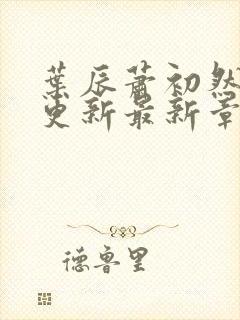 葉辰蕭初然
更新最新章
德魯里